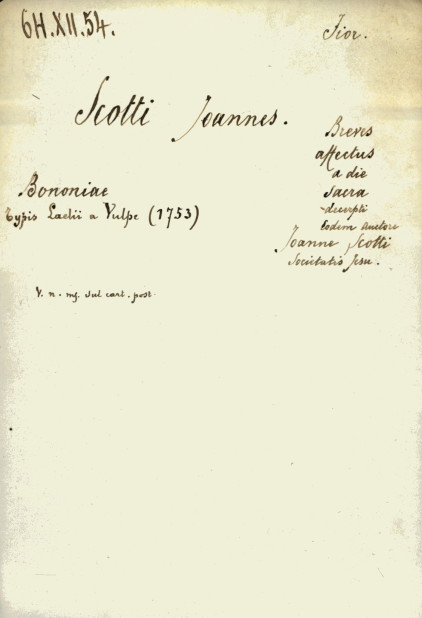 6H.XII.54.
Fior.
Scotti Joannes.
Breves
affectus
a die
sacra
decerpti
eodem auctore
Joanne Scotti
Societatis Jesu.
Bononiae
Typis Laelii a Vulpe (1753)
V. n. mg. sul cart. post.